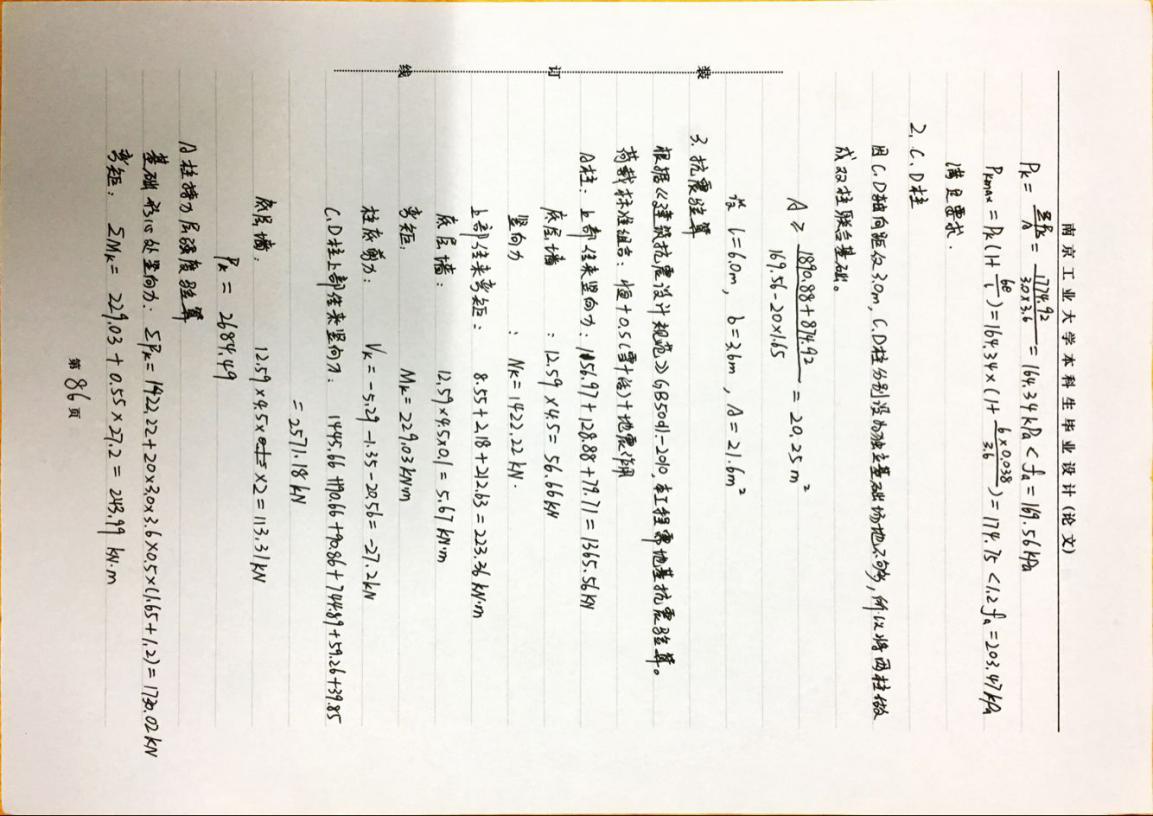 南京工业大学本科生毕业设计(论文)
Pk = ΣPk/A = 1774.92/3.0×3.6 = 164.34 kPa < fa = 169.56 kPa
Pkmax = Pk(1+6e/l) = 164.34×(1+6×0.038/3.6) = 174.75 < 1.2fa = 203.47 kPa
满足要求.
2. C.D柱
因C.D轴间距仅3.0m, C.D柱分别设为独立基础场地不够, 所以将两柱做
成双柱联合基础。
A ≥ 1890.88+874.92/169.56-20×1.65 = 20.25 m²
设 l=6.0m, b=3.6m, A=21.6m²
3. 抗震验算
根据《建筑抗震设计规范》GB50011-2010, 本工程需地基抗震验算。
荷载标准组合: 恒+0.5(雪+活)+地震作用
A柱: 上部传来竖向力: 1156.97+128.88+79.71=1365.56kN
底层墙 : 12.59×4.5=56.66kN
竖向力 : Nk=1422.22kN.
上部传来弯矩: 8.55+2.18+212.63=223.36kN·m
底层墙: 12.59×4.5×0.1=5.67kN·m
弯矩: Mk=229.03kN·m
柱底剪力: Vk=-5.29-1.35-20.56=-27.2kN
C.D柱上部传来竖向力: 1445.66+190.66+90.86+744.89+59.26+39.85
= 2571.18kN
底层墙: 12.59×4.5××2=113.31kN
Pk = 2684.49
A柱持力层强度验算
基础形心处竖向力: ΣPk=1422.22+20×3.0×3.6×0.5×(1.65+1.2)=1730.02kN
弯矩: ΣMk=229.03+0.55×27.2=243.99 kN·m
第86页
装
订
线